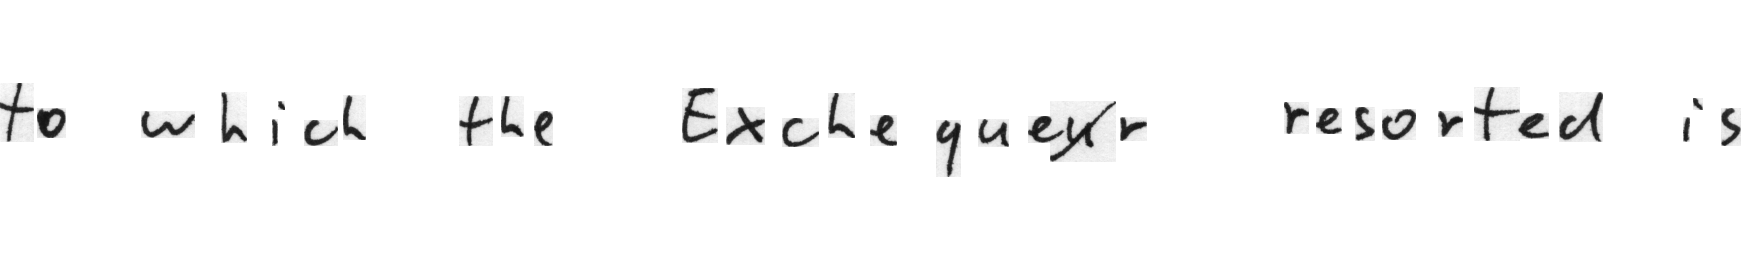 to which the Exchequer resorted is